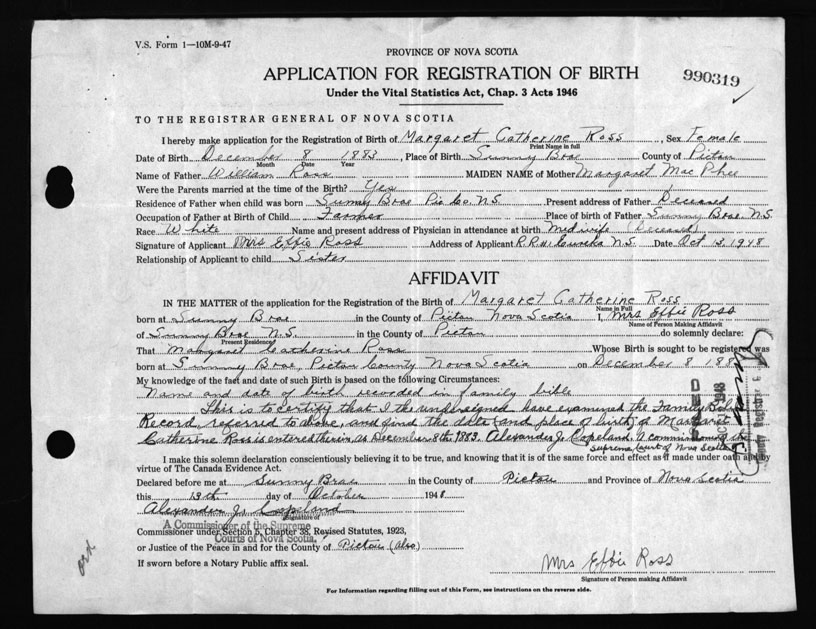 V.S. Form 1—10M-9-47
PROVINCE OF NOVA SCOTIA
APPLICATION FOR REGISTRATION OF BIRTH
990319
Under the Vital Statistics Act, Chap. 3 Acts 1946
TO THE REGISTRAR GENERAL OF NOVA SCOTIA
I hereby make application for the Registration of Birth of Margaret Catherine Ross, Sex Female
Print Name in full
Date of Birth December 8 1883, Place of Birth Sunny Brae County of Pictou
Month Date Year
Name of Father William Ross MAIDEN NAME of Mother Margaret Mac Phee
Were the Parents married at the time of the Birth? Yes
Residence of Father when child was born Sunny Brae Pic Co. N.S. Present address of Father Deceased
Occupation of Father at Birth of Child Farmer Place of birth of Father Sunny Brae, N.S
Race White Name and present address of Physician in attendance at birth Midwife (Deceased)
Signature of Applicant Mrs Effie Ross Address of Applicant R.R. Eureka N.S. Date Oct 13, 1948
Relationship of Applicant to child Sister
AFFIDAVIT
IN THE MATTER of the application for the Registration of the Birth of Margaret Catherine Ross
Name in Full
born at Sunny Brae in the County of Pictou Nova Scotia I, Mrs Effie Ross
Name of Person Making Affidavit
of Sunny Brae N.S. in the County of Pictou do solemnly declare:
Present Residence
That Margaret Catherine Ross Whose Birth is sought to be registered was
born at Sunny Brae, Pictou County Nova Scotia on December 8 188
My knowledge of the fact and date of such Birth is based on the following Circumstances:
Name and date of birth recorded in family bible
This is to certify that I the undersigned have examined the Family Bible
Record, referred to above, and find the date (and place of birth) of Margaret
Catherine Ross is entered therein, as December 8th 1883. Alexander J. Copeland, A commissioner of the
Supreme Court of Nova Scotia
I make this solemn declaration conscientiously believing it to be true, and knowing that it is of the same force and effect as if made under oath and by
virtue of The Canada Evidence Act.
Declared before me at Sunny Brae in the County of Pictou and Province of Nova Scotia
this 13th day of October 1948
Alexander J. Copeland
Signature of
A Commissioner of the Supreme
Courts of Nova Scotia,
Commissioner under Section 5, Chapter 38, Revised Statutes, 1923,
or Justice of the Peace in and for the County of Pictou (Also)
If sworn before a Notary Public affix seal.
Mrs Effie Ross
Signature of Person making Affidavit
For Information regarding filling out of this Form, see instructions on the reverse side.